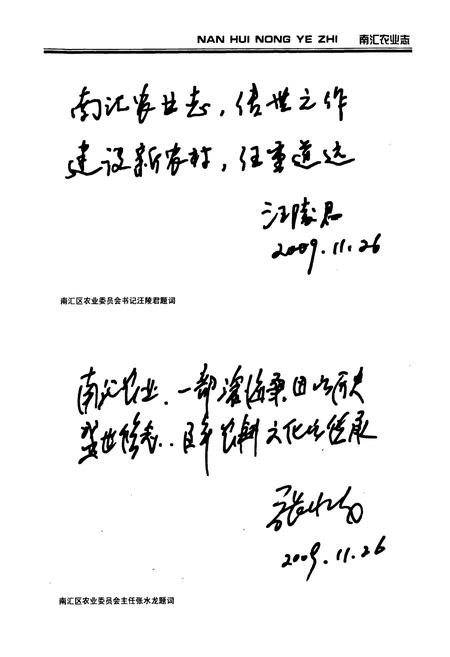 NAN HUI NONG YE ZHI 南汇农业志
南汇农业志，传世之作
建设新农村，任重道远
汪陵君
2009.11.26
南汇区农业委员会书记汪陵君题词
南汇农业，一部沧海桑田的历史
盛世修志..百年农耕文化的传承
张水龙
2009.11.26
南汇区农业委员会主任张水龙题词